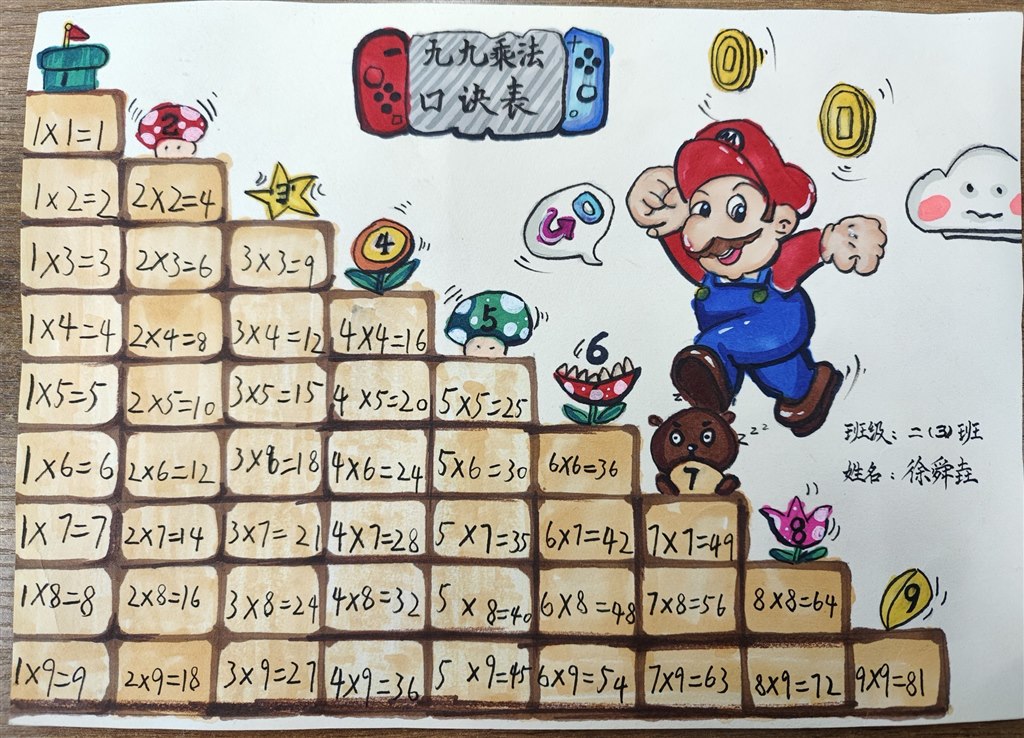 九九乘法
口诀表
GO
1×1=1
2
1×2=2 2×2=4
3
1×3=3 2×3=6 3×3=9
4
1×4=4 2×4=8 3×4=12 4×4=16
5
1×5=5 2×5=10 3×5=15 4×5=20 5×5=25
6
班级：二（3）班
姓名：徐舜垚
1×6=6 2×6=12 3×6=18 4×6=24 5×6=30 6×6=36
zzz
7
1×7=7 2×7=14 3×7=21 4×7=28 5×7=35 6×7=42 7×7=49
8
1×8=8 2×8=16 3×8=24 4×8=32 5×8=40 6×8=48 7×8=56 8×8=64
9
1×9=9 2×9=18 3×9=27 4×9=36 5×9=45 6×9=54 7×9=63 8×9=72 9×9=81